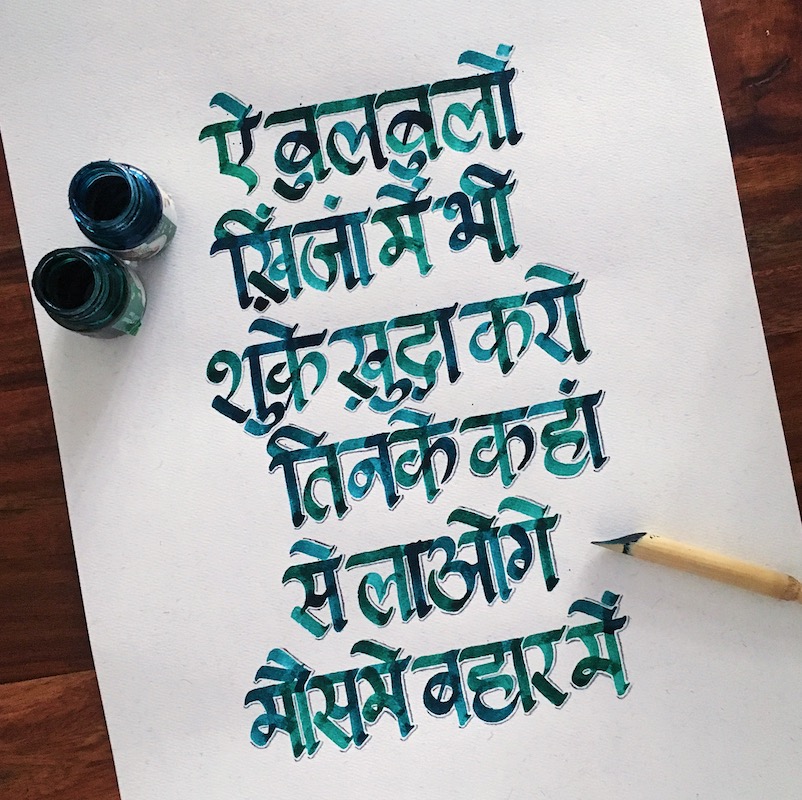 ऐ बुलबुलों
ख़िंजां में भी
शुक्रे ख़ुदा करो
तिनके कहां
से लाओगे
मौसमे बहार में